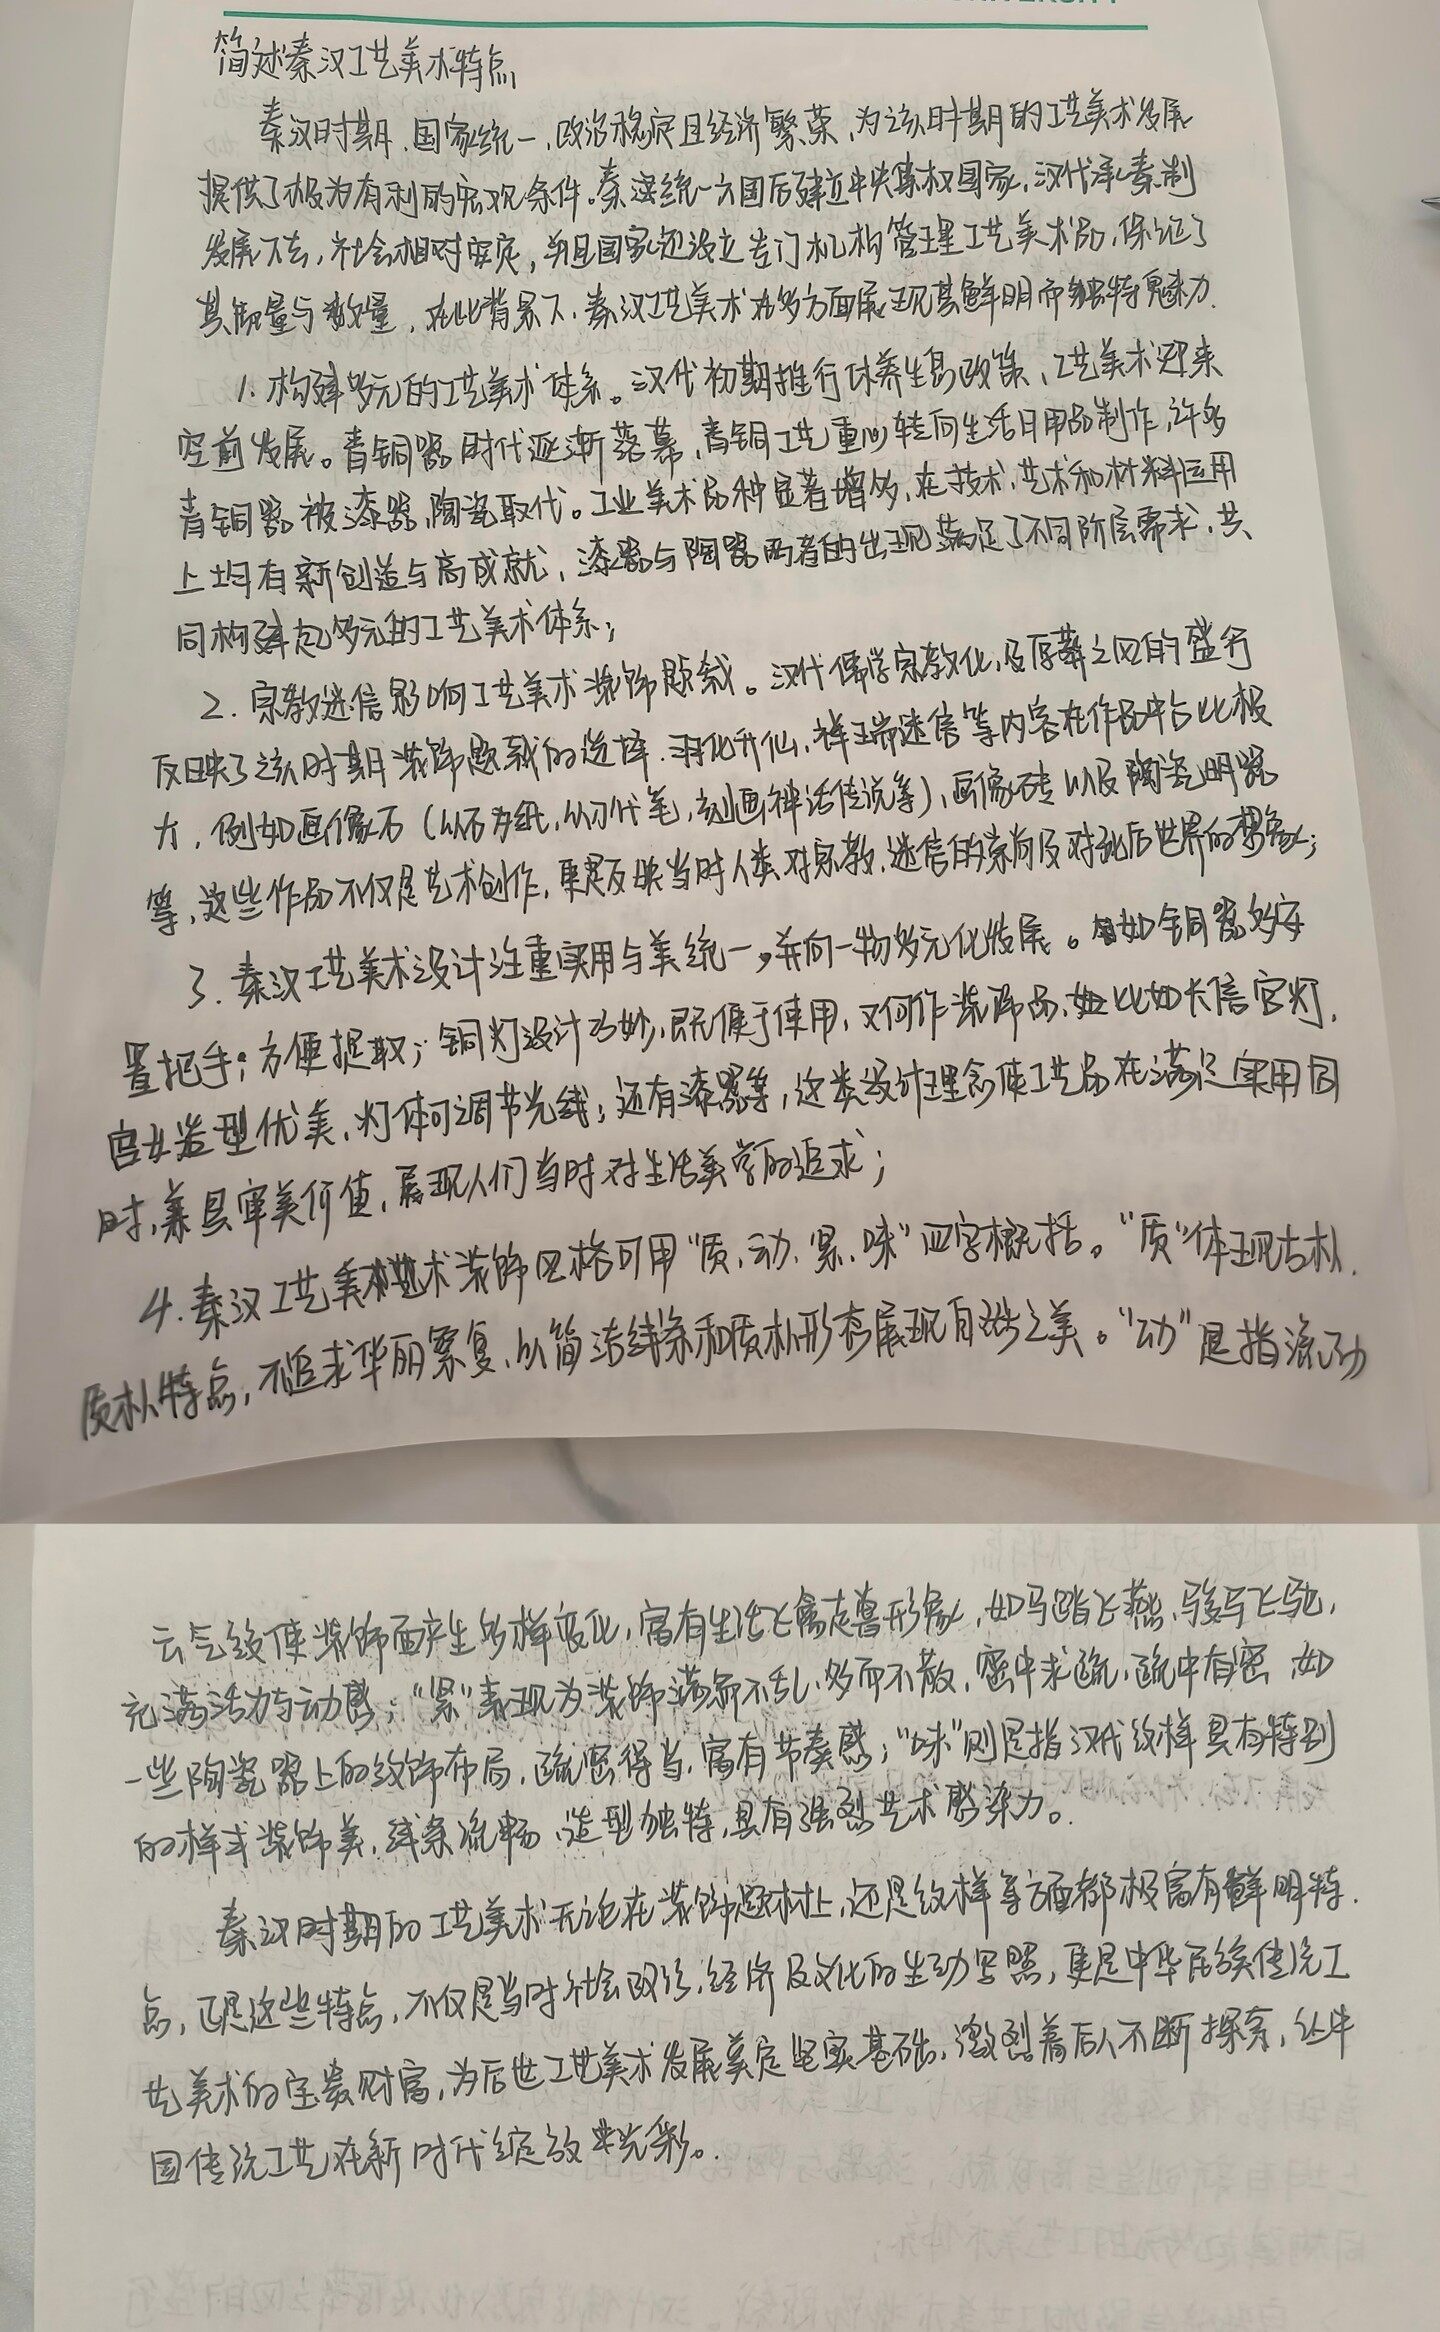 简述秦汉工艺美术特点
秦汉时期,国家统一,政治稳定且经济繁荣,为该时期的工艺美术发展
提供了极为有利的宏观条件。秦统一六国后建立中央集权国家,汉代承秦制
发展下去,社会相对安定,并且国家还设立专门机构管理工艺美术品,保证了
其质量与数量,在此背景下,秦汉工艺美术在多方面展现其鲜明而独特魅力.
1. 构建多元的工艺美术体系。汉代初期推行休养生息政策,工艺美术迎来
空前发展。青铜器时代逐渐落幕,青铜工艺重心转向生活日用品制作,许多
青铜器被漆器,陶瓷取代。工业美术品种显著增多,在技术,艺术和材料运用
上均有新创造与高成就,漆器与陶器两者的出现满足了不同阶层需求,共
同构建起多元的工艺美术体系;
2. 宗教迷信影响工艺美术装饰题裁。汉代儒学宗教化,及厚葬之风的盛行
反映了该时期装饰题裁的选择.羽化升仙,祥瑞迷信等内容在作品中占比极
大,例如画像石(以石为纸,以刀代笔,刻画神话传说等),画像砖以及陶瓷明器
等,这些作品不仅是艺术创作,更是反映当时人类对宗教,迷信的崇尚及对死后世界的想象;
3. 秦汉工艺美术设计注重实用与美统一,并向一物多元化发展。如铜器多安
置把手,方便提取;铜灯设计巧妙,既便于使用,又可作装饰品,比如长信宫灯,
宫女造型优美,灯体可调节光线;还有漆器等,这类设计理念使工艺品在满足实用同
时,兼具审美价值,展现人们当时对生活美学的追求;
4. 秦汉工艺美术装饰风格可用"质,动,紧,味"四字概括。"质"体现古朴.
质朴特点,不追求华丽繁复,以简洁线条和质朴形态展现自然之美。"动"是指流动
云气纹使装饰面产生多样变化,富有生活飞禽走兽形象,如马踏飞燕,骏马飞驰,
充满活力与动感;"紧"表现为装饰满而不乱,多而不散,密中求疏,疏中有密 如
一些陶瓷器上的纹饰布局,疏密得当,富有节奏感;"味"则是指汉代纹样具有特别
的样式装饰美,线条流畅,造型独特,具有强烈艺术感染力。
秦汉时期的工艺美术无论在装饰题材上,还是纹样等方面都极富有鲜明特.
点,正是这些特点,不仅是当时社会政治,经济及文化的生动写照,更是中华民族传统工
艺美术的宝贵财富,为后世工艺美术发展奠定坚实基础,激烈着后人不断探索,让中
国传统工艺在新时代绽放光彩。